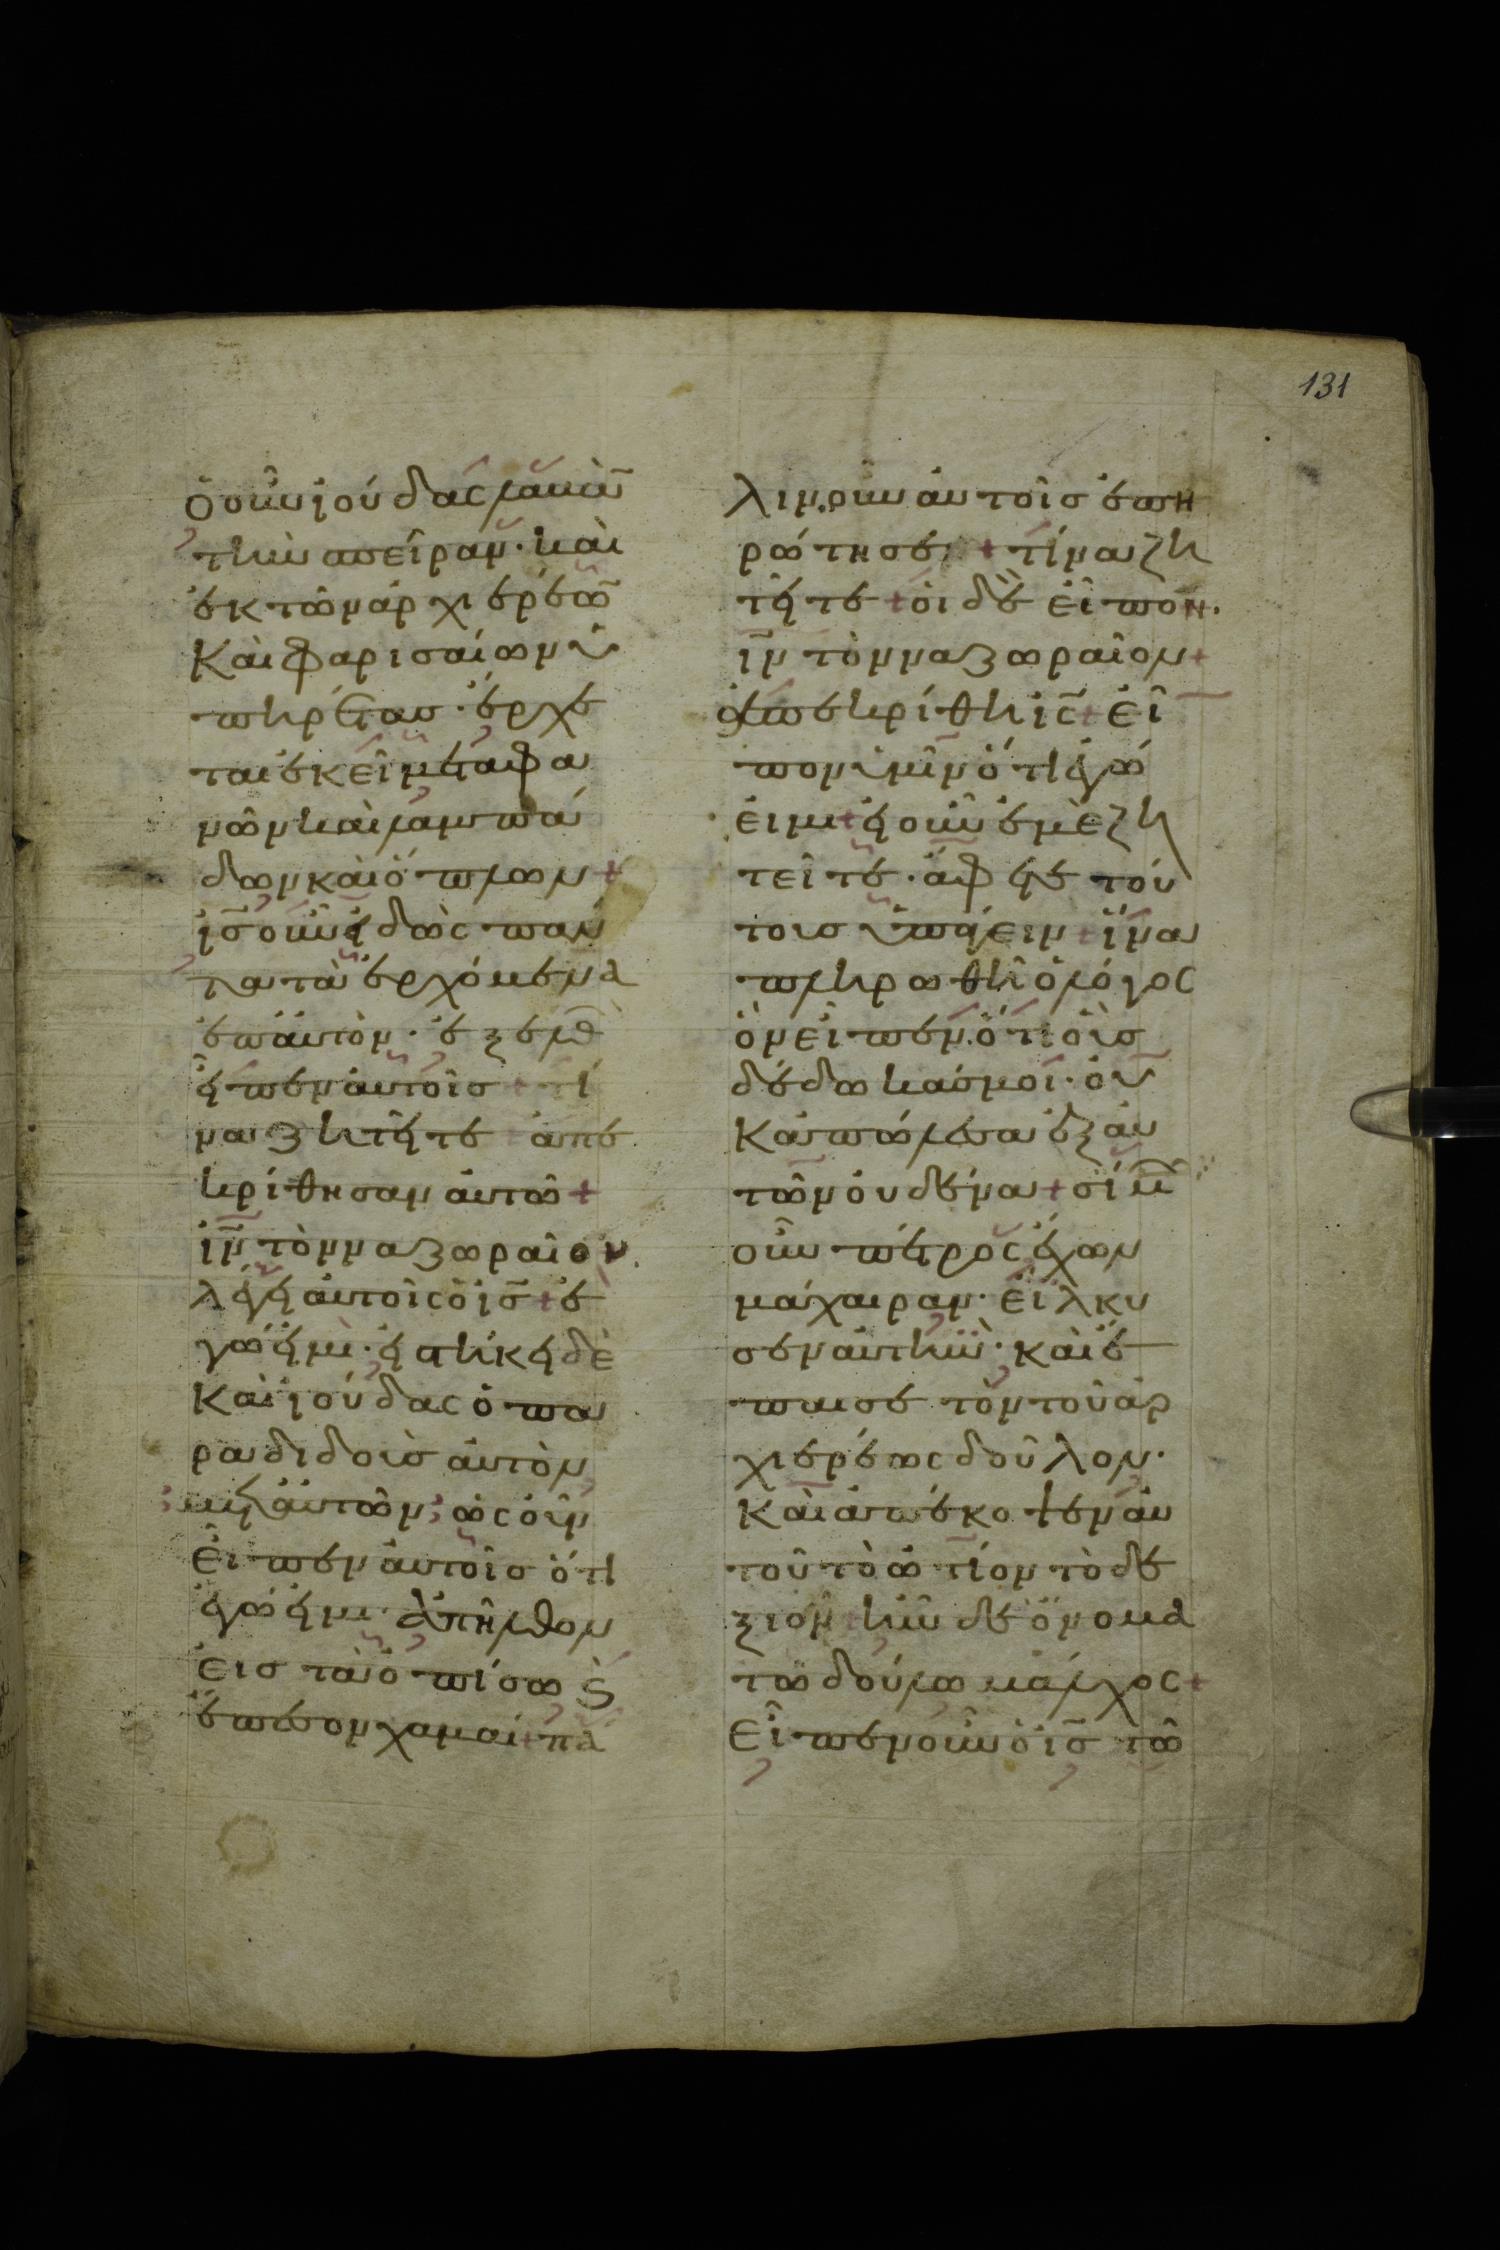 131
ὁ οὖν ἰούδας λαβὼ̅
τὴν σπεῖραν· καὶ
ἐκ τῶν ἀρχιερέω̅
καὶ φαρισαίων ὑ
πηρέτας· ἔρχε
ται ἐκεῖ μετὰ φα
νῶν καὶ λαμπά
δων καὶ ὅπλων +
ἰ̅ς̅ οὖν εἰδὼς πάν
τα τὰ ἐρχόμενα
ἐπ αὐτὸν· ἐξελθ
εἶπεν αὐτοῖς + τί
να ζητεῖτε + ἀπε
κρίθησαν αὐτῶ +
ἰ̅ν̅ τὸν ναζωραῖον
λέγει αὐτοῖς ὁ ἰ̅ς̅ + ἐ
γώ εἰμὶ· εἱστήκει δὲ
καὶ ἰούδας ὁ πα
ραδιδοὺς αὐτὸν
μετ αὐτῶν· ὡς οὖν
εἶπεν αὐτοῖς ὅτι
ἐγώ εἰμι· ἀπῆλθον
εἰς τὰ ὀπίσω ϗ
ἔπεσον χαμαί + πά
λιν οὖν αὐτοῖς ἐπη
ρώτησε + τίνα ζη
τεῖτε + οἱ δὲ εἶπον·
ἰ̅ν̅ τὸν ναζωραῖον +
ἀπεκρίθη ἰ̅ς̅ + εἶ
πον ὑμῖν ὅτι ἐγώ
εἰμι + εἰ οὖν ἐμὲ ζη
τεῖτε· ἄφετε τού
τους ὑπάγειν + ἵνα
πληρωθῆ ὁ λόγος
ὃν εἶπεν· ὅτι οὓς
δέδωκάς μοι· οὐ
κ ἀπώλεσα ἐξ αὐ
τῶν οὐδένα + σίμ
οὖν πέτρος ἔχων
μάχαιραν· εἵλκυ
σεν αὐτὴν· καὶ ἔ
παισε τὸν τοῦ ἀρ
χιερέως δοῦλον·
καὶ ἀπέκοψεν αὐ
τοῦ τὸ ὠτίον τὸ δε
ξιόν + ἦν δὲ ὄνομα
τῶ δούλω μάλχος +
εἶπεν οὖν ὁ ἰ̅ς̅ τῶ